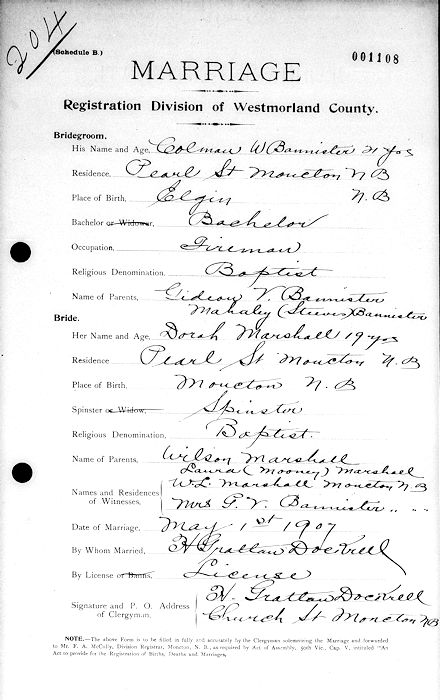 204
(Schedule B.)
001108
MARRIAGE
Registration Division of Westmorland County.
Bridegroom.
His Name and Age, Colman W Bannister 21 yrs
Residence, Pearl St Moncton N B
Place of Birth, Elgin N.B
Bachelor or Widower, Bachelor
Occupation, Fireman
Religious Denomination, Baptist
Name of Parents, Gideon V. Bannister
Mahaley (Steeves) Bannister
Bride.
Her Name and Age, Dorah Marshall 19 yrs
Residence Pearl St Moncton N.B
Place of Birth, Moncton N.B
Spinster or Widow, Spinster
Religious Denomination, Baptist.
Name of Parents, Wilson Marshall
Laura (Mooney) Marshall
Names and Residences of Witnesses, W.L. Marshall Moncton N B
Mrs G. V. Bannister " "
Date of Marriage, May 1st 1907
By Whom Married, H Grattan Dockrell
By License or Banns, License
Signature and P. O. Address of Clergyman, H. Grattan Dockrell
Church St Moncton N.B
NOTE.—The above Form is to be filled in fully and accurately by the Clergyman solemnizing the Marriage and forwarded
to Mr. F. A. McCully, Division Registrar, Moncton, N. B., as required by Act of Assembly, 50th Vic., Cap. V, intituled "An
Act to provide for the Registration of Births, Deaths and Marriages.